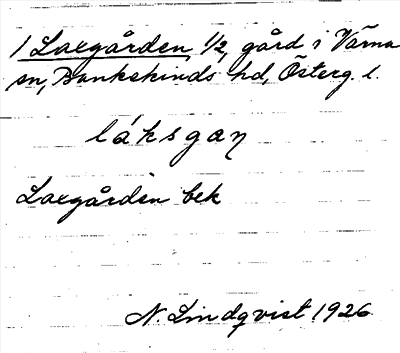 1 Laxgården 1/2, gård i Värna
sn, Bankekinds hd, Österg. l.
láksgaɲ
Laxgården bek
N. Lindqvist 1926